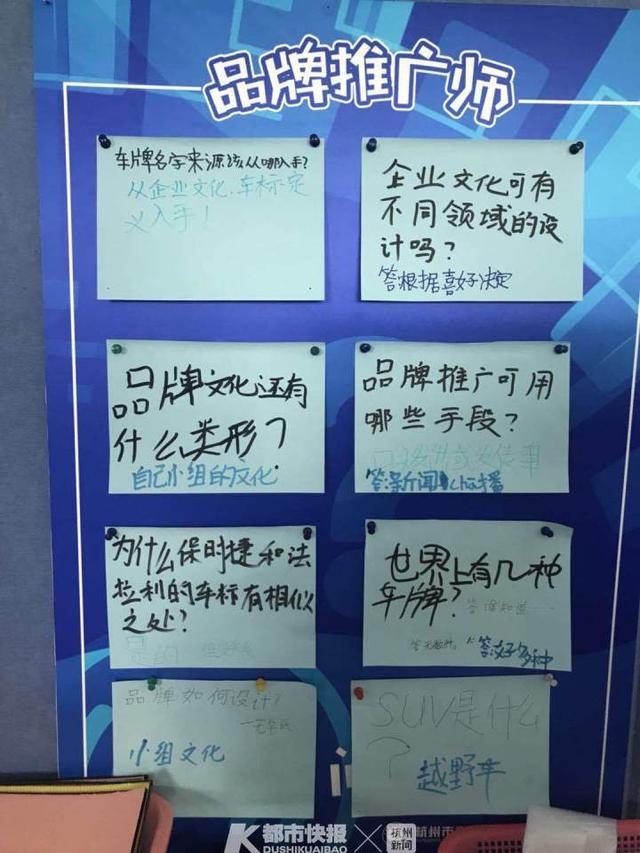 品牌推广师
车牌名字来源该从哪入手?
从企业文化.车标定
义入手!
企业文化可有
不同领域的设
计吗?
答根据喜好决定
品牌文化还有
什么类形?
自己小组的文化
品牌推广可用
哪些手段?
答:新闻 传播
为什么保时捷和法
拉利的车标有相似
之处?
世界上有几种
车牌?
答:谁知道
答无数种
答:好多种
品牌如何设计?
小组文化
SUV是什么
?
越野车
都市快报
DUSHIKUAIBAO
×
杭州
新闻
杭州市